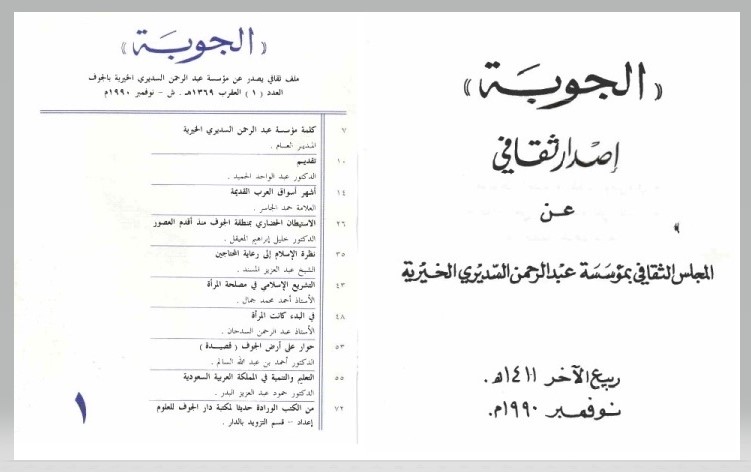 «الجوبة»
إصدار ثقافي
عن
المجلس الثقافي بمؤسسة عبد الرحمن السديري الخيرية
ربيع الآخر ١٤١١هـ.
نوفمبر ١٩٩٠م.
«الجوبة»
ملف ثقافي يصدر عن مؤسسة عبد الرحمن السديري الخيرية بالجوف
العدد ( ١ ) العقرب ١٣٦٩هـ . ش - نوفمبر ١٩٩٠م
كلمة مؤسسة عبد الرحمن السديري الخيرية ٧
المدير العام .
تقديم ١٠
الدكتور عبد الواحد الحميد .
أشهر أسواق العرب القديمة ١٤
العلامة حمد الجاسر .
الاستيطان الحضاري بمنطقة الجوف منذ أقدم العصور ٢٦
الدكتور خليل إبراهيم المعيقل .
نظرة الإسلام إلى رعاية المحتاجين ٣٥
الشيخ عبد العزيز المسند .
التشريع الإسلامي في مصلحة المرأة ٤٣
الأستاذ أحمد محمد جمال .
في البدء كانت المرأة ٤٨
الأستاذ عبد الرحمن السدحان .
حوار على أرض الجوف ( قصيدة ) ٥٣
الدكتور أحمد بن عبد الله السالم .
التعليم والتنمية في المملكة العربية السعودية ٥٥
الدكتور حمود عبد العزيز البدر .
من الكتب الواردة حديثا لمكتبة دار الجوف للعلوم ٧٢
إعداد - قسم التزويد بالدار .
١